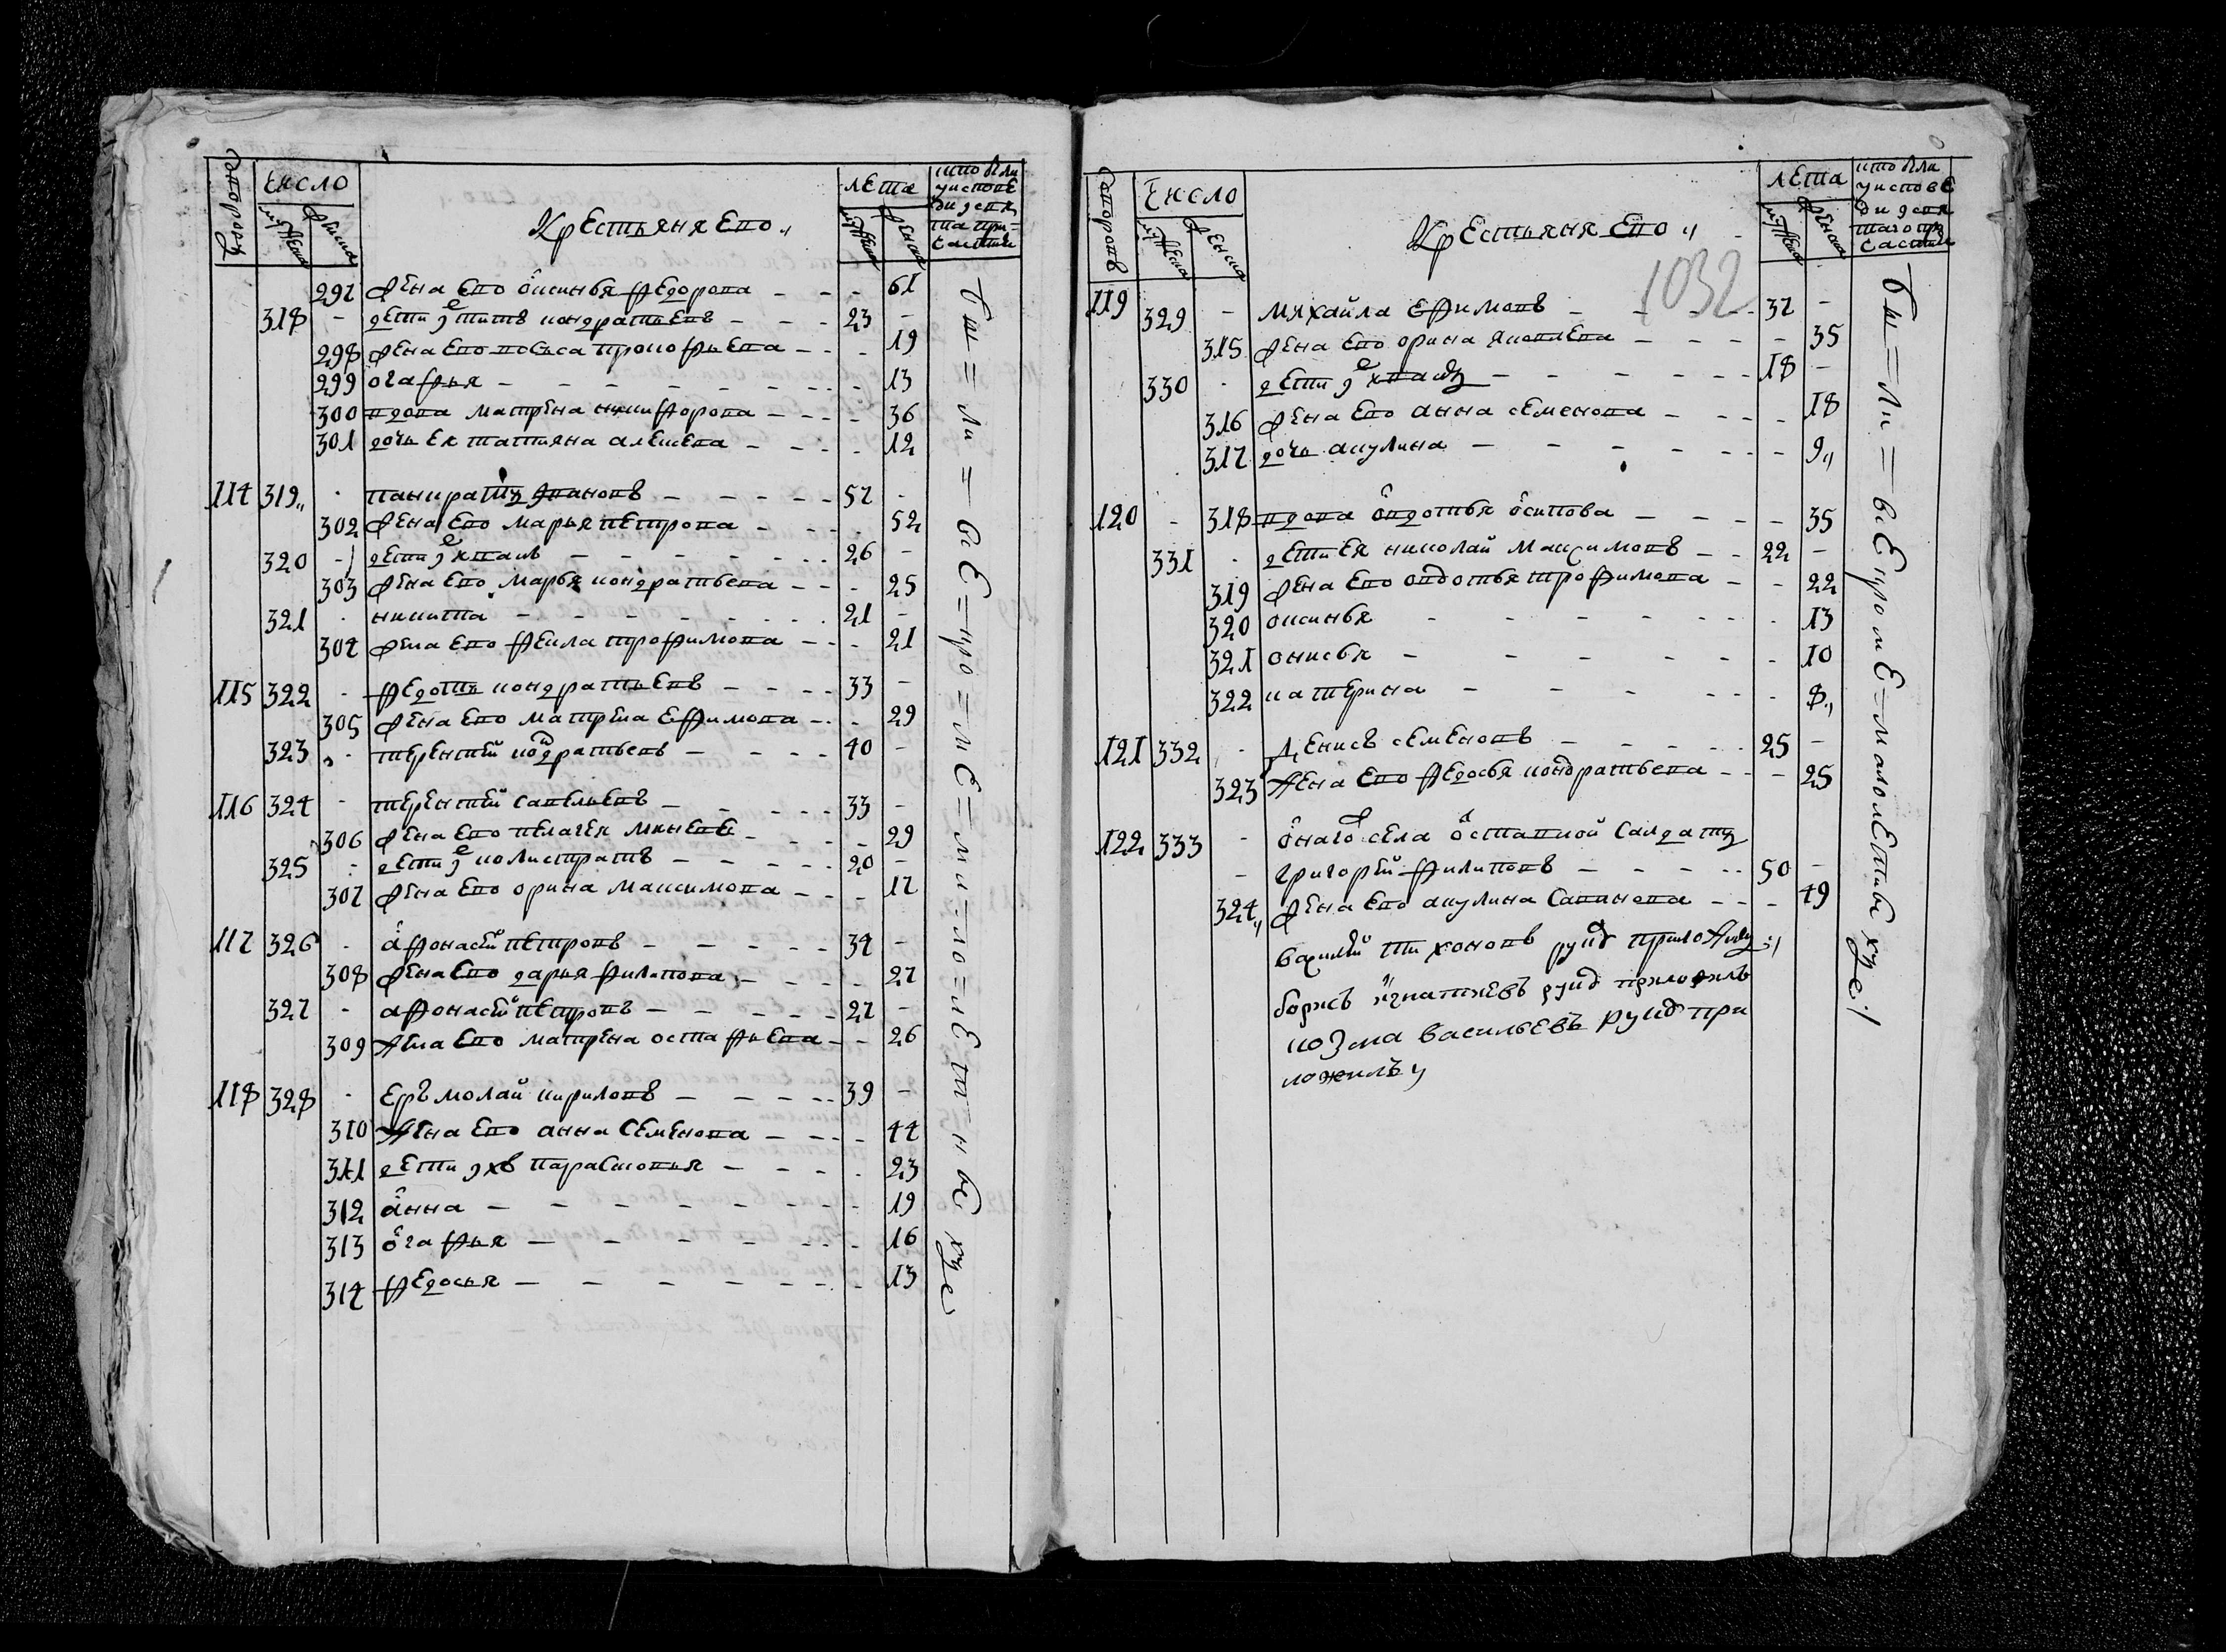 дворовъ
число
мужеска
женска
Крестьяня ево
лета
мужеска
женска
кто были у исповеди и святаго причастия
297 жена ево оксинья федорова - - - 61
318 - дети ево титъ кондратьевъ - - - 23 -
298 жена ево васса прокофьева - - - 19
299 огафья - - - 13
300 вдова матрена никифорова - - - 36
301 дочь ея татьяна алексева - - - 12
114 319 - панкратъ ивановъ - - - 57 -
302 жена ево марья петрова - - - 52
320 - дети ихъ - - - 26 -
303 жена ево марья кондратьева - - - 25
321 - никита - - - 21 -
304 жена ево фекла трофимова - - - 21
115 322 - федотъ кондратьевъ - - - 33 -
305 жена ево матрена ефимова - - - 29
323 - терентей кондратьевъ - - - 40 -
116 324 - терентей савельевъ - - - 33 -
306 жена ево пелагея - - - 29
325 - дети ево калистратъ - - - 20 -
307 жена ево орина максимова - - - 17
117 326 - афонасей петровъ - - - 34 -
308 жена ево дарья филипова - - - 27
327 - афонасей петровъ - - - 27 -
309 жена ево матрена остафьева - - 26
118 328 - ерьмолай кириловъ - - - 39 -
310 жена ево анна семенова - - - 44
311 дети ихъ парасковья - - - 23
312 анна - - - 19
313 огафья - - - 16
314 федосья - - - 13
бы=ли=все=кро=ме=ма=ло=лет=ныхъ
дворовъ
число
мужеска
женска
Крестьяня ево
лета
мужеска
женска
кто были у исповеди и святаго причастия
1032
119 329 - михайла ефимовъ - - - 37 -
315 жена ево орина яковлева - - - 35
330 - дети ево - - - 18 -
316 жена ево анна семенова - - - 18
317 дочь акулина - - - 9
120 - 318 вдова овдотья осипова - - - 35
331 - дети ея николай максимовъ - - 22 -
319 жена ево овдотья трофимова - - 22
320 оксинья - - - 13
321 онисья - - - 10
322 катерина - - - 8
121 332 - денисъ семеновъ - - - 25 -
323 жена ево федосья кондратьева - - 25
122 333 - онаго села отставной салдатъ
- григорей филиповъ - - - 50 -
324 жена ево акулина савинова - - - 49
василей тихоновъ руку приложилъ
борисъ игнатьевъ руку приложилъ
козма васильевъ руку при
ложилъ
бы=ли=все кроме=малолетныхъ